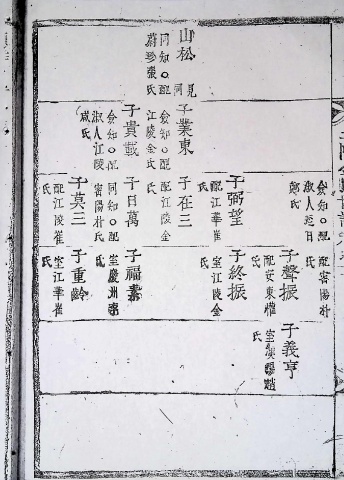 山松
同知○配
蔚珍張氏
子業東
僉知○配
江陵金氏
子貴載
僉知○配
淑人江陵
咸氏
僉知○配
淑人迎日
鄭氏
子弼望
配江華崔
氏
子在三
配江陵金
氏
子日萬
同知○配
密陽朴氏
子莫三
配江陵崔
氏
配密陽朴
氏
子聲振
配安東權
氏
子終振
室江陵金
氏
子福
室慶州
氏
子重齡
室江華崔
氏
子義亨
室漢陽趙
氏